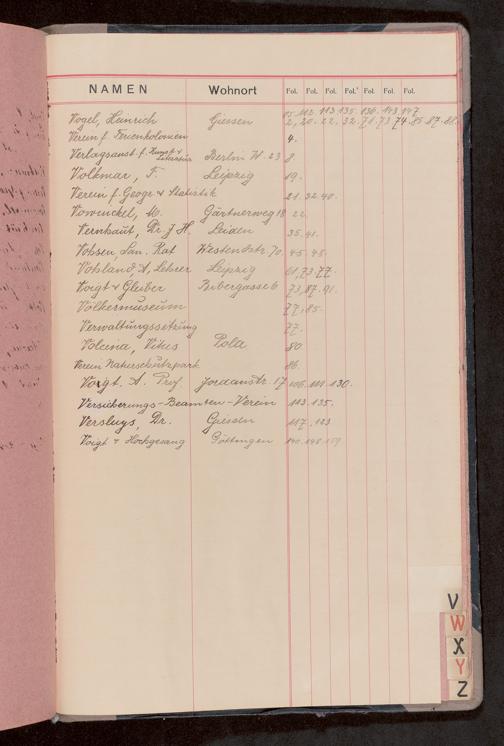 NAMEN Wohnort Fol. Fol. Fol. Fol. Fol. Fol. Fol.
113 135. 136. 143 147
Vogel, Heinrich Giessen 2, 20. 22. 32. 71. 73 74. 85. 87. 88.
Verein f. Ferienkolonien 4.
Verlagsanst. f. Kunst & Literatur Berlin W. 23 8
Volkmar, F. Leipzig 19.
Verein f. Geogr. & Statistik 21. 32. 40.
Vowinckel, M. Gärtnerweg 18 22.
Vernhout, Dr. J. H. Leiden 35. 41.
Vohsen, San. Rat Westendstr. 70. 45. 48.
Vohsland, A, Lehrer Leipzig 61, 73. 77.
Voigt & Gleiber Bibergasse 6 73, 87. 91.
Völkermuseum 77. 85.
Verwaltungssetzung 77.
Volena, Vitus Pola 80
Verein Naturschutzpark 86.
Voigt. A. Prof Jordanstr. 17 106. 111. 130.
Versicherungs-Beamten-Verein 113. 135.
Versluys, Dr. Giessen 117. 123
Voigt & Hochgesang Göttingen 140. 148. 159
V
W
X
Y
Z